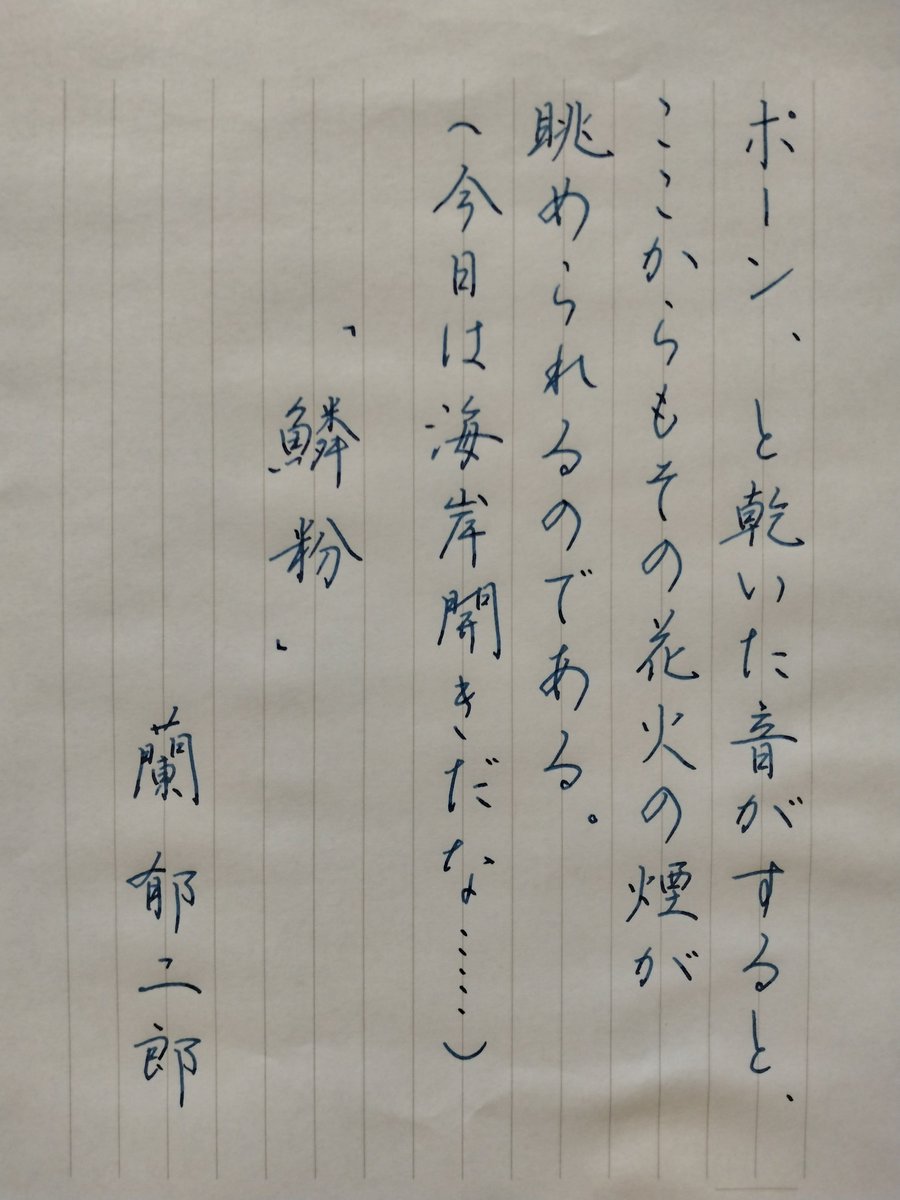 ポーン、と乾いた音がすると、
ここからもその花火の煙が
眺められるのである。
(今日は海岸開きだな……)
「鱗粉」
蘭郁二郎